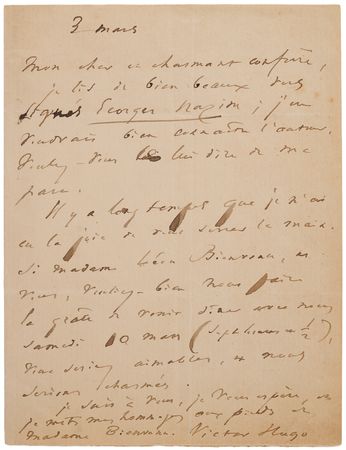 3 mars
Mon cher et charmant confrère,
je lis de bien beaux vers
signés Georges Nazim ; j'en
voudrais bien connaître l'auteur.
Voulez-vous le lui dire de ma
part.
Il y a longtemps que je n'ai
eu la joie de vous serrer la main.
Si madame Léon Bienvenu, et
vous, voulez bien nous faire
la grâce de venir dîner avec nous
samedi 10 mars (sept heures et 1/2),
vous seriez aimables, et nous
serions charmés.
je suis à vous, je vous espère, et
je mets mes hommages aux pieds de
madame Bienvenu. Victor Hugo